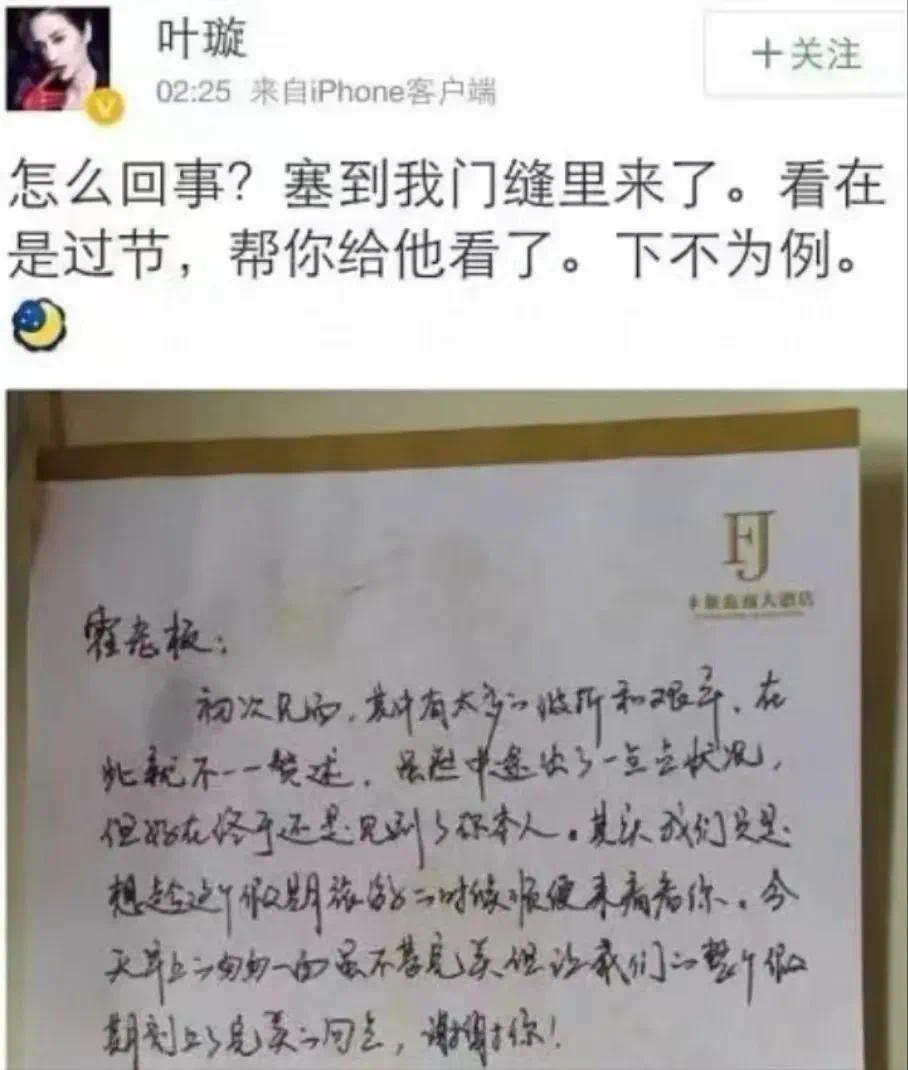 叶璇
02:25 来自iPhone客户端
+关注
怎么回事?塞到我门缝里来了。看在
是过节,帮你给他看了。下不为例。
V
FJ
大酒店
霍老板:
初次见面,其中有太多的波折和艰辛,在
此就不一一赘述,虽然中途出了一点点状况,
但好在终于还是见到了你本人。其实我们只是
想趁这个假期旅游的时候顺便来看看你。今
天早上的匆匆一面虽不甚完美但让我们的整个假
期划上了完美的句点,谢谢你!